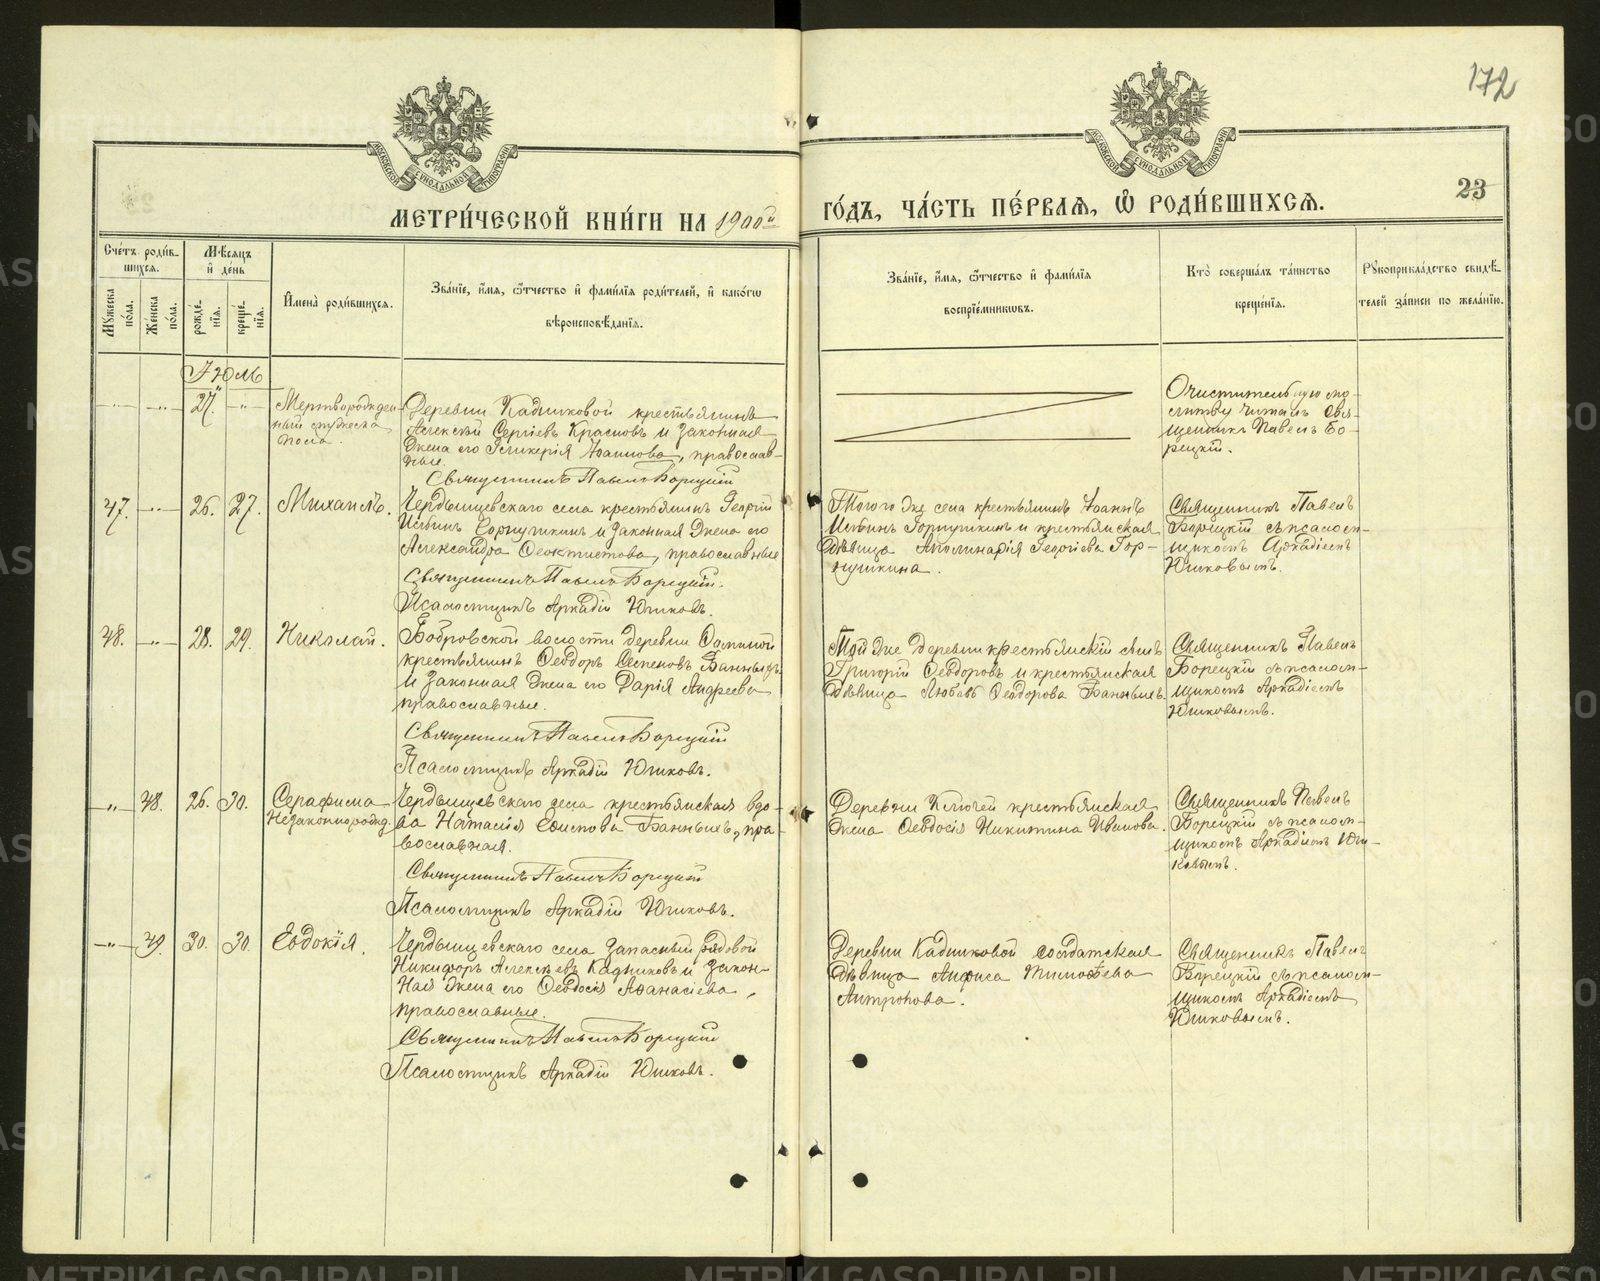 172
23
МЕТРИ́ЧЕСКОЙ КНИ́ГИ НА 1900й
ГО́ДЪ, ЧА́СТЬ ПЕ́РВАѦ, Ѿ РОДИ́ВШИХСѦ.
Сче́тъ роди́в-
шихсѧ.
Мѣ́сѧцъ
и҆ день
Мꙋ́жеска по́ла.
Же́нска по́ла.
рожде́-
нїѧ.
креще́-
нїѧ.
И҆мена̀ роди́вшихсѧ.
Зва́нїе, и҆́мѧ, ѻ҆́тчество и҆ фами́лїѧ роди́телей, и҆ како́гѡ
вѣроисповѣ́данїѧ.
Зва́нїе, и҆́мѧ, ѻ҆́тчество и҆ фами́лїѧ
воспрїе́мникѡвъ.
Кто̀ соверша́лъ та́инство
креще́нїѧ.
Рꙋкоприкла́дство свидѣ́-
телей за́писи по жела́нїю.
Июль
27. Мертворожден-
ный мужеска
пола.
Деревни Кадниковой крестьянинъ
Алексѣй Сергіевъ Красновъ и законная
жена его Гликерія Іоаннова, православ-
ные.
Священникъ Павелъ Борецкій
Очистительную мо-
литву читалъ свя-
щенникъ Павелъ Бо-
рецкій.
47. 26. 27. Михаилъ.
Чердынцевскаго села крестьянинъ Георгій
Горпушкинъ и законная жена его
Александра Феоктистова, православные
Священникъ Павелъ Борецкій.
Псаломщикъ Аркадій Юшковъ.
Того же села крестьянинъ Іоаннъ
Горпушкинъ и крестьянская
дѣвица Аполинарія Георгіева Гор-
пушкина.
Священникъ Павелъ
Борецкій съ псалом-
щикомъ Аркадіемъ
Юшковымъ.
48. 28. 29. Николай.
Бобровской волости деревни
крестьянинъ Феодоръ Банныхъ
и законная жена его Дарія Андреева
православные.
Священникъ Павелъ Борецкій
Псаломщикъ Аркадій Юшковъ.
Той же деревни крестьянскій сынъ
Григорій Феодоровъ и крестьянская
дѣвица Любовь Феодорова Банныхъ.
Священникъ Павелъ
Борецкій съ псалом-
щикомъ Аркадіемъ
Юшковымъ.
48. 26. 30. Серафима
Незаконнорожд.
Чердынцевскаго села крестьянская вдо-
ва Наталія Банныхъ, пра-
вославная.
Священникъ Павелъ Борецкій
Псаломщикъ Аркадій Юшковъ.
Деревни Ключей крестьянская
жена Феодосія Никитина Иванова.
Священникъ Павелъ
Борецкій съ псалом-
щикомъ Аркадіемъ Юш-
ковымъ.
49. 30. 30. Евдокія.
Чердынцевскаго села запасный рядовой
Никифоръ Алексѣевъ Кадниковъ и закон-
ная жена его Феодосія Афанасіева,
православные.
Священникъ Павелъ Борецкій
Псаломщикъ Аркадій Юшковъ.
Деревни Кадниковой солдатская
дѣвица Анфиса Тимофѣева
Антропова.
Священникъ Павелъ
Борецкій съ псалом-
щикомъ Аркадіемъ
Юшковымъ.